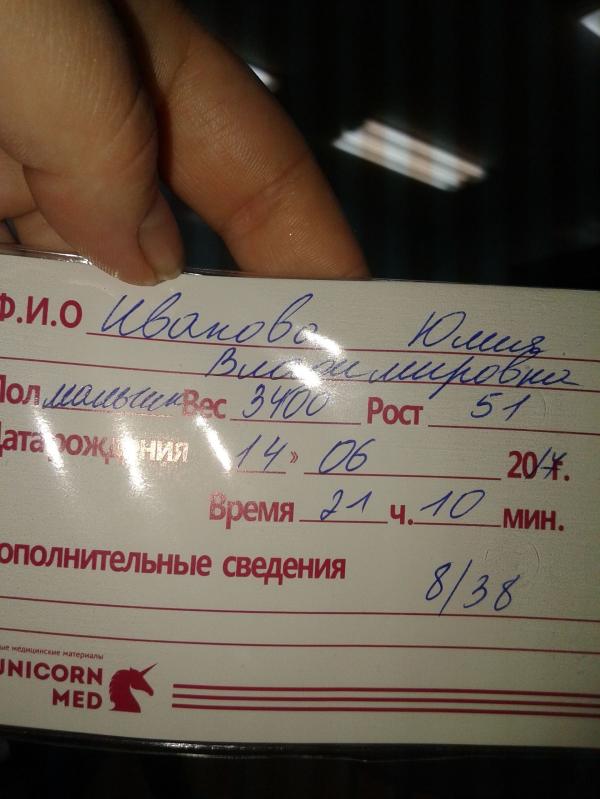 Ф.И.О Иванова Юлия
Владимировна
Пол мальчик Вес 3400 Рост 51
Дата рождения 14 » 06 2017г.
Время 21 ч. 10 мин.
ополнительные сведения
8/38
ые медицинские материалы
UNICORN
MED